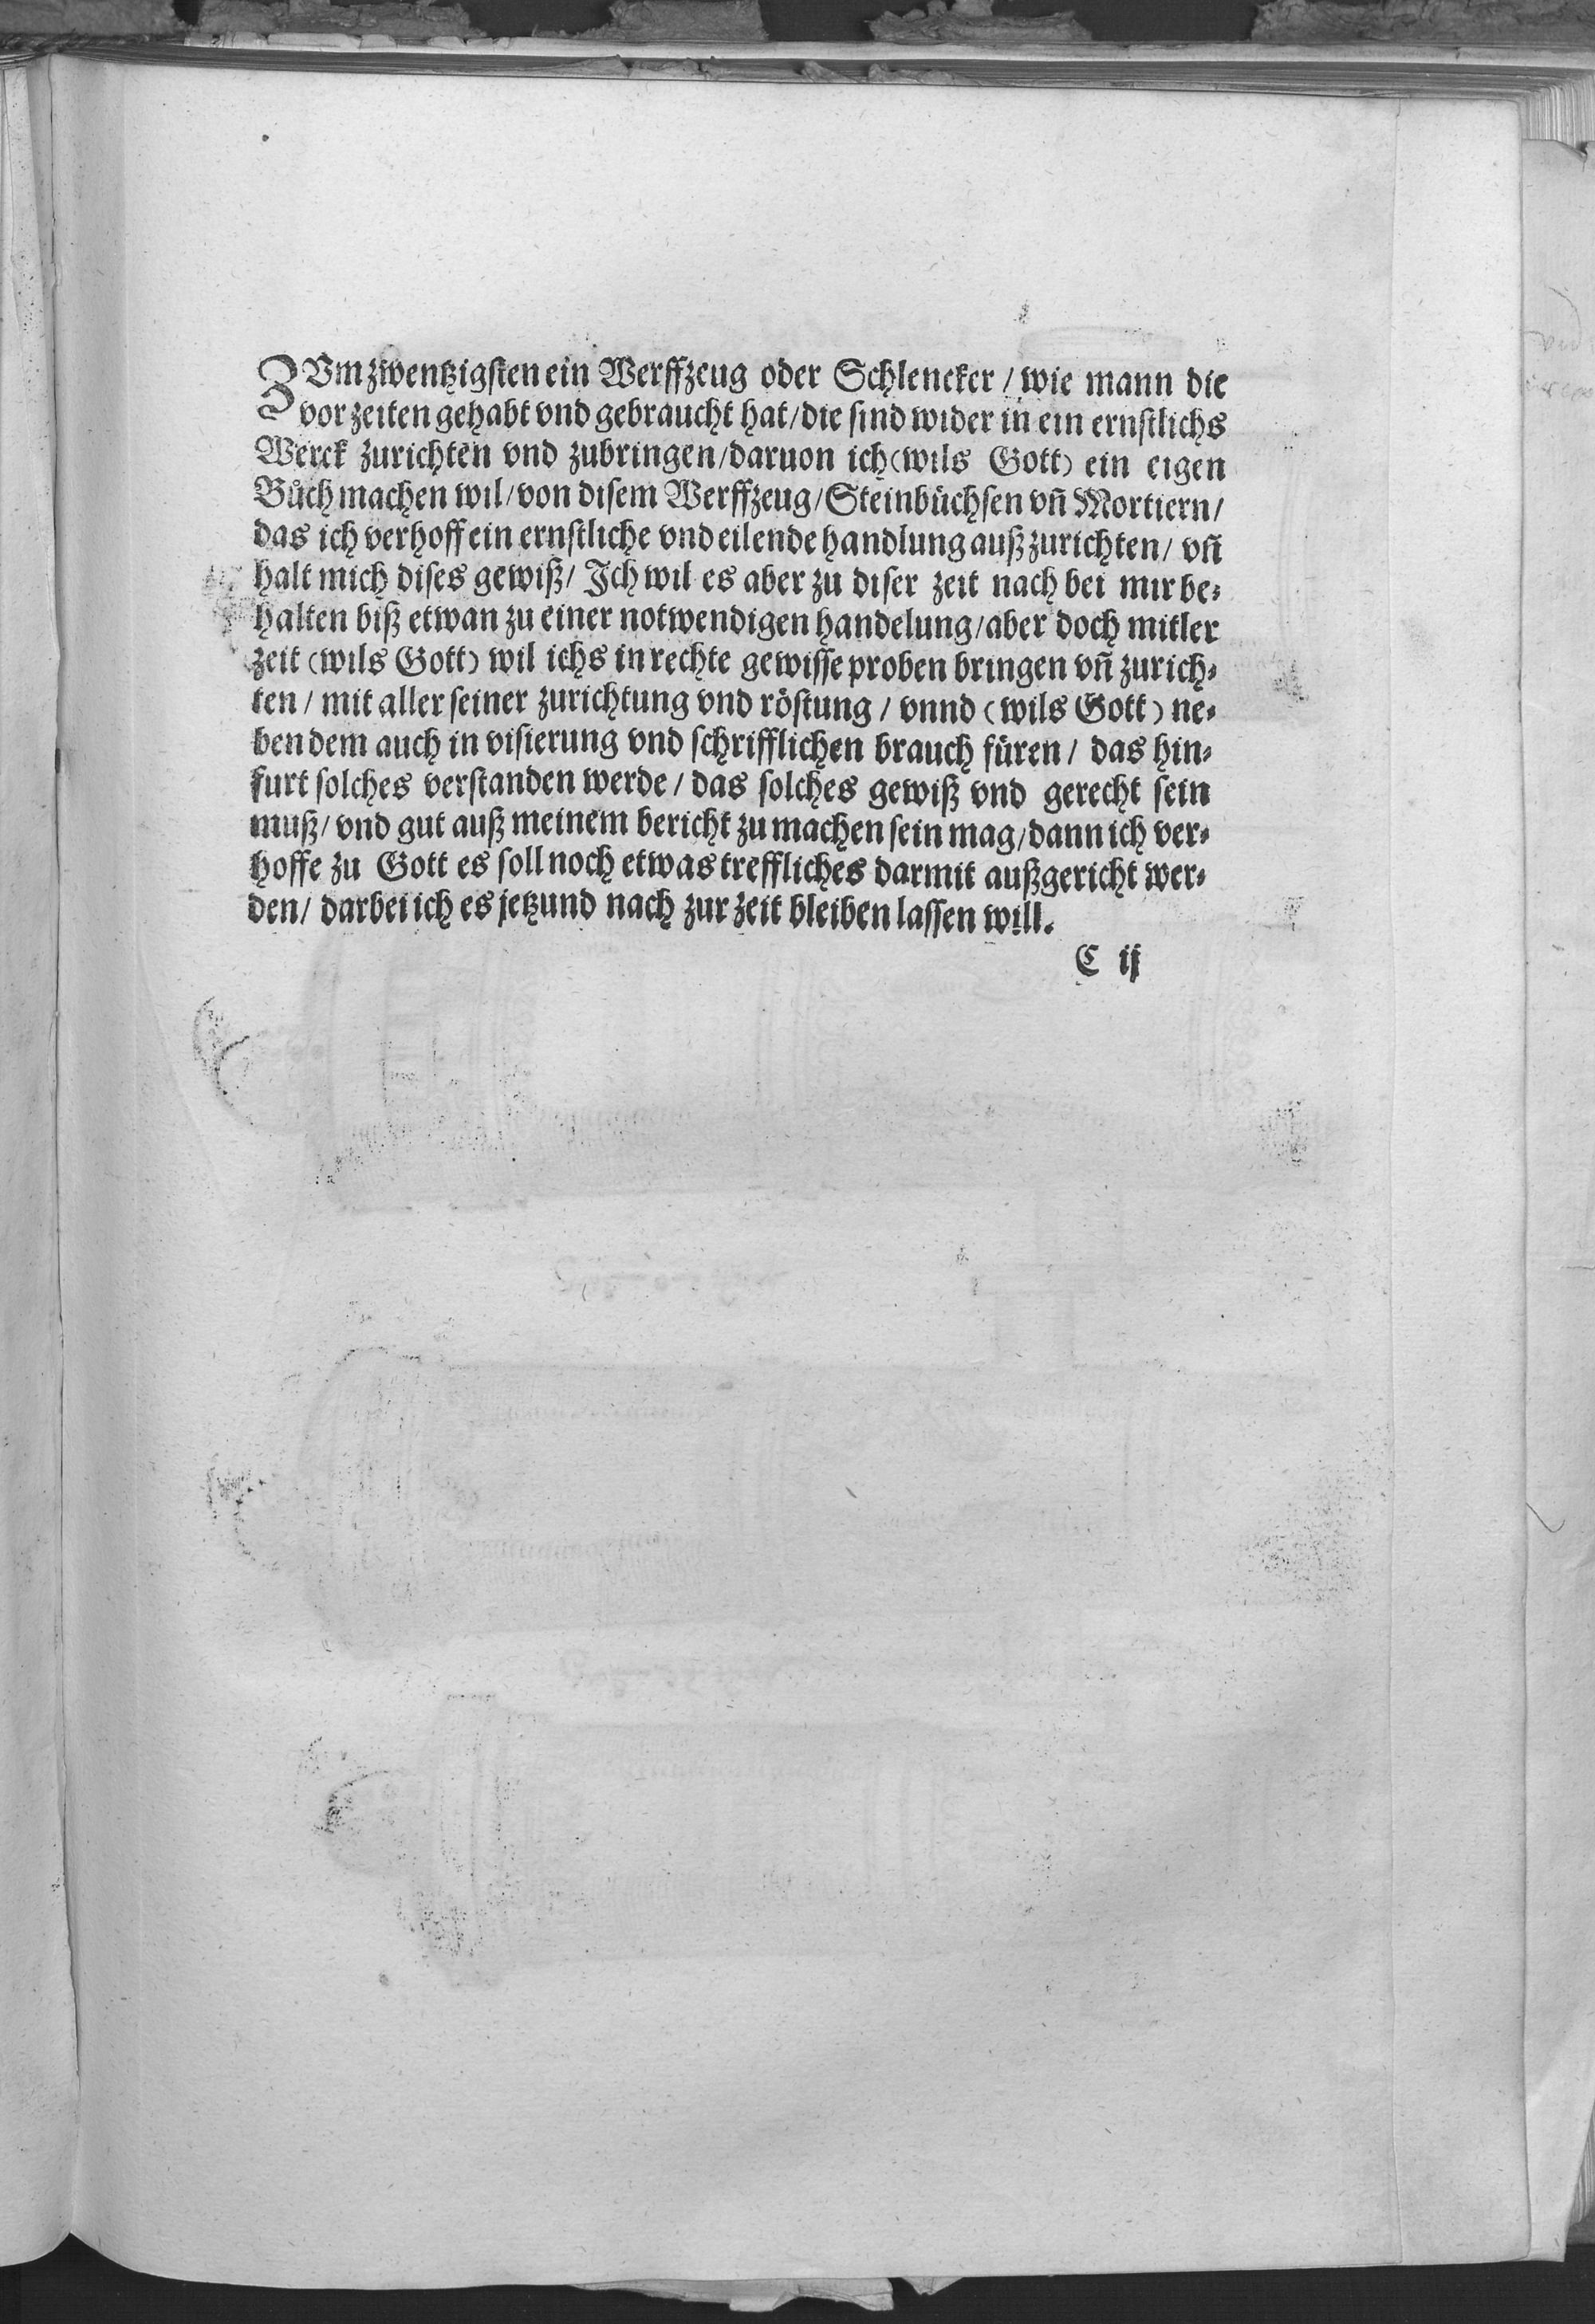 ZVm zwentzigsten ein Werffzeug oder Schlencker / wie mann die
vor zeiten gehabt vnd gebraucht hat / die sind wider in ein ernstlichs
Werck zurichten vnd zubringen / daruon ich (wils Gott) ein eigen
Bůch machen wil / von disem Werffzeug / Steinbüchsen vñ Mortiern /
das ich verhoff ein ernstliche vnd eilende handlung außzurichten / vñ
halt mich dises gewiß / Ich wil es aber zu diser zeit nach bei mir be⸗
halten biß etwan zu einer notwendigen handelung / aber doch mitler
zeit (wils Gott) wil ichs in rechte gewisse proben bringen vñ zurich⸗
ten / mit aller seiner zurichtung vnd röstung / vnnd (wils Gott) ne⸗
ben dem auch in visierung vnd schrifflichen brauch füren / das hin⸗
furt solches verstanden werde / das solches gewiß vnd gerecht sein
muß / vnd gut auß meinem bericht zu machen sein mag / dann ich ver⸗
hoffe zu Gott es soll noch etwas treffliches darmit außgericht wer⸗
den / darbei ich es jetzund nach zur zeit bleiben lassen will.
C ij